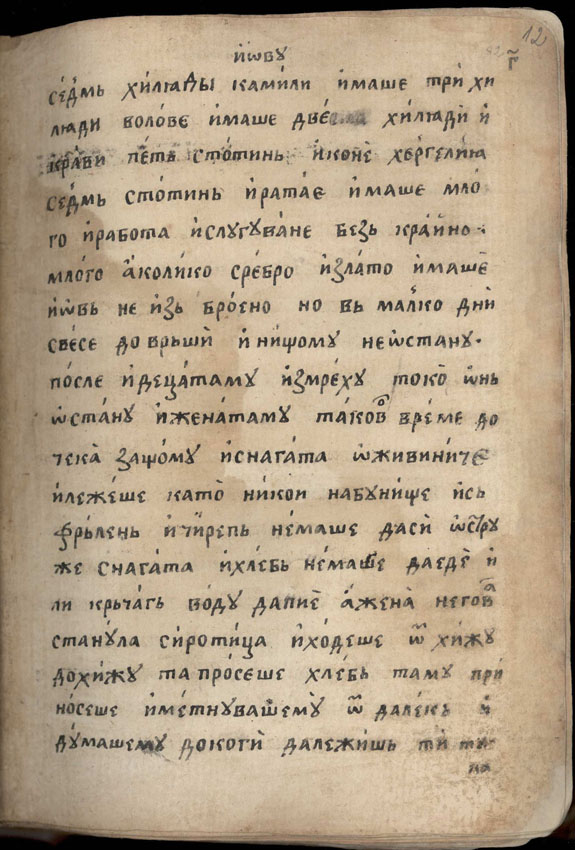 12
г҃
їѡву
се́дмь хи́люды ками́ли и́маше три́ хи
люди воло́вє и́маше две́ хи́люди и́
кра́ви пе́ть сто́тинь и́коне̏ херге́лиꙗ
се́дмь сто́тинь и́рата́е и́маше мло́
го и́рабо́та и́слугува́не безь кра́ино
мло́го а҆коли́ко сре́бро и́зла́то и́маше
їѡ́вь не и́зь бро́ено но вь ма́лко дни́
све́се до врьши̏ и́ ни́щому не ѡ҆стану̀
по́сле и́деца́таму и҆змре́ху токо̀ ѡ҆нь
ѡ҆ста́ну и́жена́таму тако́в вре́ме до
чека̀ защо́му и҆снага́та ѡ҆живини́че
и҆леже́ше като̀ ни́кои на бу́нище и҆сь
фрьлень и҆ чи́репь не́маше даси̏ ѡ҆стру
же снага́та и҆хле́бь не́маше да еде̏ и҆
ли крьча́гь во́ду да пие̏ а҆жена̀ него́ва
стану́ла сироти́ца и҆хо́деше ѿ хи́жу
до хи́жу та про́сеше хле́бь таму при
но́сеше и҆ме́тнувашему̀ ѿ дале́кь и҆
ду́машему докоги̏ да лежи́шь ти